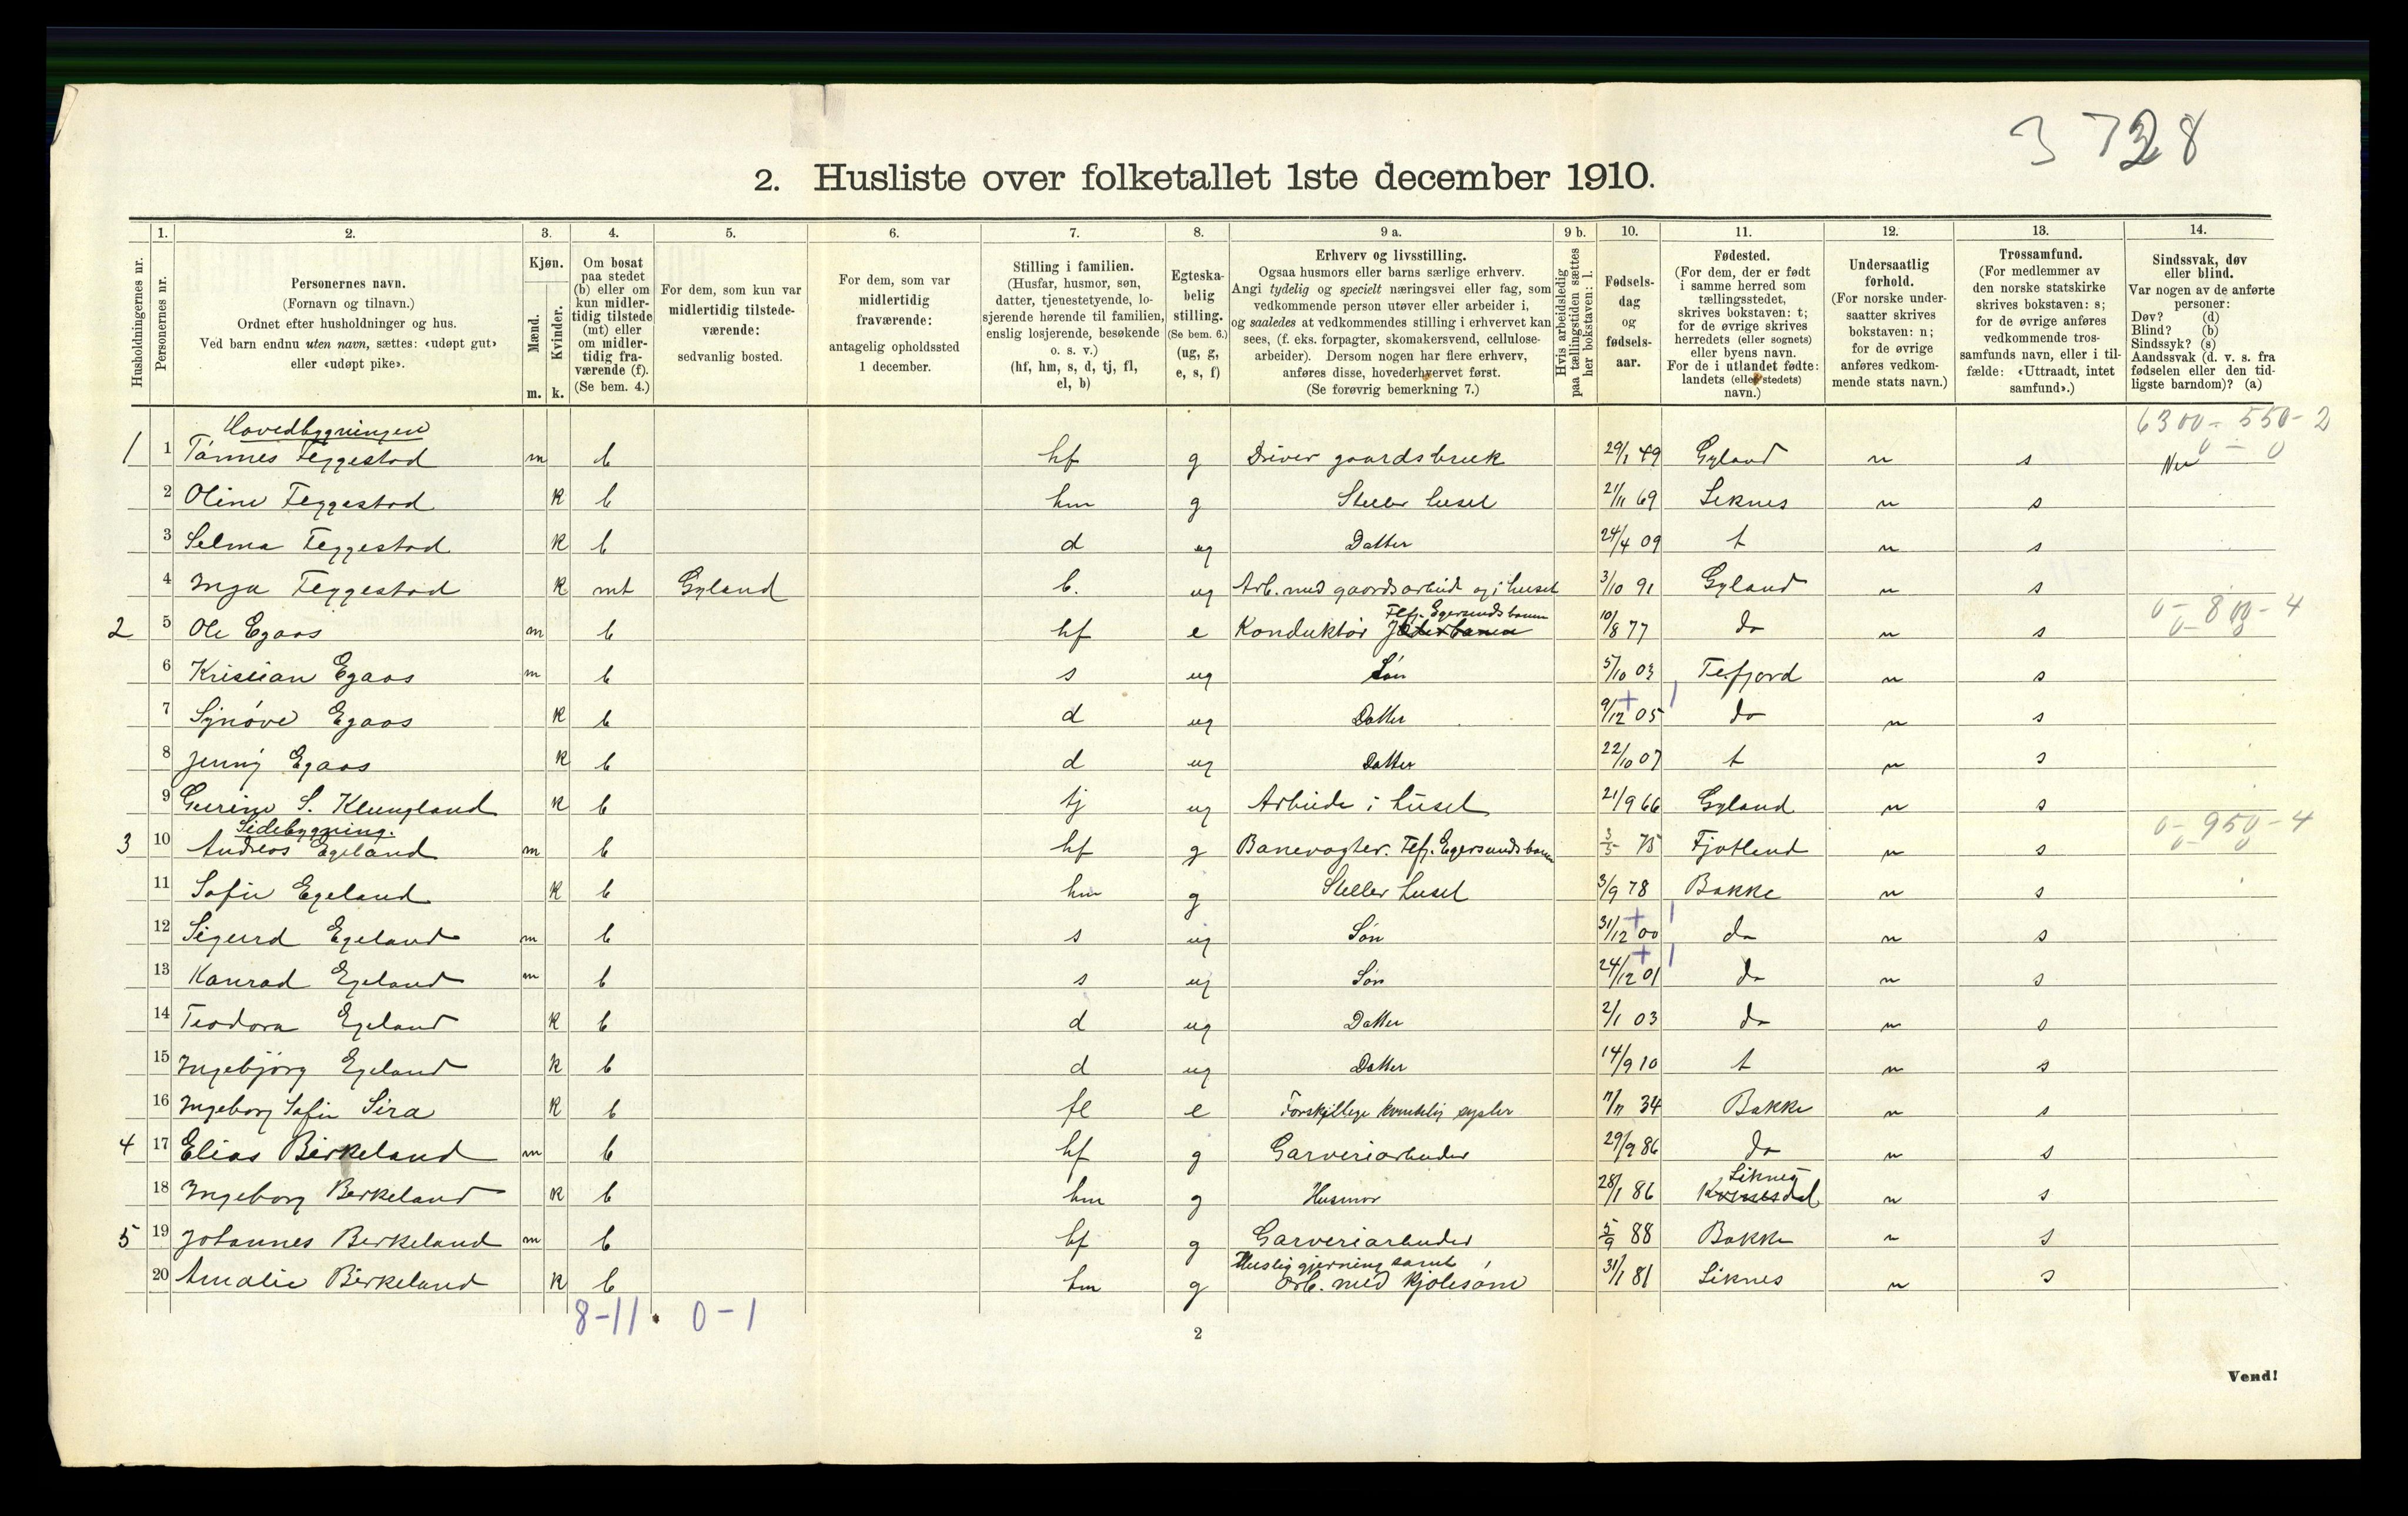 3 728
2. Husliste over folketallet 1ste december 1910.
Husholdningernes nr.
1. Personernes nr.
2. Personernes navn.
(Fornavn og tilnavn.)
Ordnet efter husholdninger og hus.
Ved barn endnu uten navn, sættes: «udøpt gut»
eller «udøpt pike».
3. Kjøn.
Mænd. Kvinder.
m. k.
4. Om bosat
paa stedet
(b) eller om
kun midler-
tidig tilstede
(mt) eller
om midler-
tidig fra-
værende (f).
(Se bem. 4.)
5. For dem, som kun var
midlertidig tilstede-
værende:
sedvanlig bosted.
6. For dem, som var
midlertidig
fraværende:
antagelig opholdssted
1 december.
7. Stilling i familien.
(Husfar, husmor, søn,
datter, tjenestetyende, lo-
sjerende hørende til familien,
enslig losjerende, besøkende
o. s. v.)
(hf, hm, s, d, tj, fl,
el, b)
8. Egteska-
belig
stilling.
(Se bem. 6.)
(ug, g,
e, s, f)
9 a. Erhverv og livsstilling.
Ogsaa husmors eller barns særlige erhverv.
Angi tydelig og specielt næringsvei eller fag, som
vedkommende person utøver eller arbeider i,
og saaledes at vedkommendes stilling i erhvervet kan
sees, (f. eks. forpagter, skomakersvend, cellulose-
arbeider). Dersom nogen har flere erhverv,
anføres disse, hovederhvervet først.
(Se forøvrig bemerkning 7.)
9 b. Hvis arbeidsledig
paa tællingstiden sættes
her bokstaven: l.
10. Fødsels-
dag
og
fødsels-
aar.
11. Fødested.
(For dem, der er født
i samme herred som
tællingsstedet,
skrives bokstaven: t;
for de øvrige skrives
herredets (eller sognets)
eller byens navn.
For de i utlandet fødte:
landets (eller stedets)
navn.)
12. Undersaatlig
forhold.
(For norske under-
saatter skrives
bokstaven: n;
for de øvrige
anføres vedkom-
mende stats navn.)
13. Trossamfund.
(For medlemmer av
den norske statskirke
skrives bokstaven: s;
for de øvrige anføres
vedkommende tros-
samfunds navn, eller i til-
fælde: «Uttraadt, intet
samfund».)
14. Sindssvak, døv
eller blind.
Var nogen av de anførte
personer:
Døv? (d)
Blind? (b)
Sindssyk? (s)
Aandssvak (d. v. s. fra
fødselen eller den tid-
ligste barndom)? (a)
Hovedbygningen 6300 - 550 - 2
0 - 0
1 1 Tønnes Feggestad m b hf g Driver gaardsbruk 29/1 49 Gyland n s
2 Oline Feggestad k b hm g Steller huset 21/11 69 Liknes n s
3 Selma Feggestad k b d ug Datter 24/4 09 t n s
4 Inga Feggestad k mt Gyland b. ug Arb. med gaardsarbeid og i huset 3/10 91 Gyland n s
Flefj. Egersundsbanen 0 - 800 - 4
2 5 Ole Egaas m b hf e Konduktør Jæderbanen 10/8 77 do n s 0 - 0
6 Kristian Egaas m b s ug Søn 5/10 03 Flefjord n s
7 Synøve Egaas k b d ug Datter 9/12 05 do n s
8 Jenny Egaas k b d ug Datter 22/10 07 t n s
9 Gurine S. Klungland k b tj ug Arbeide i huset 21/9 66 Gyland n s
Sidebygning. 0 - 950 - 4
3 10 Andreas Egeland m b hf g Banevogter. Flefj. Egersundsbanen 3/5 75 Fjotland n s 0 - 0
11 Sofie Egeland k b hm g Steller huset 3/9 78 Bakke n s
12 Sigurd Egeland m b s ug Søn 31/12 00 do n s
13 Konrad Egeland m b s ug Søn 24/12 01 do n s
14 Teodora Egeland k b d ug Datter 2/1 03 do n s
15 Ingebjørg Egeland k b d ug Datter 14/9 10 t n s
16 Ingeborg Sofie Sira k b fl e Forskjellige kvindelig sysler 11/11 34 Bakke n s
4 17 Elias Birkeland m b hf g Garveriarbeider 29/9 86 do n s
Liknes
18 Ingeborg Berkeland k b hm g Husmor 28/1 86 Kvinesdal n s
5 19 Johannes Berkeland m b hf g Garveriarbeider 5/9 88 Bakke n s
Huslig gjerning samt
20 Amalie Birkeland k b hm g Arb. med kjolesøm 31/1 81 Liknes n s
8-11. 0-1
2
Vend!